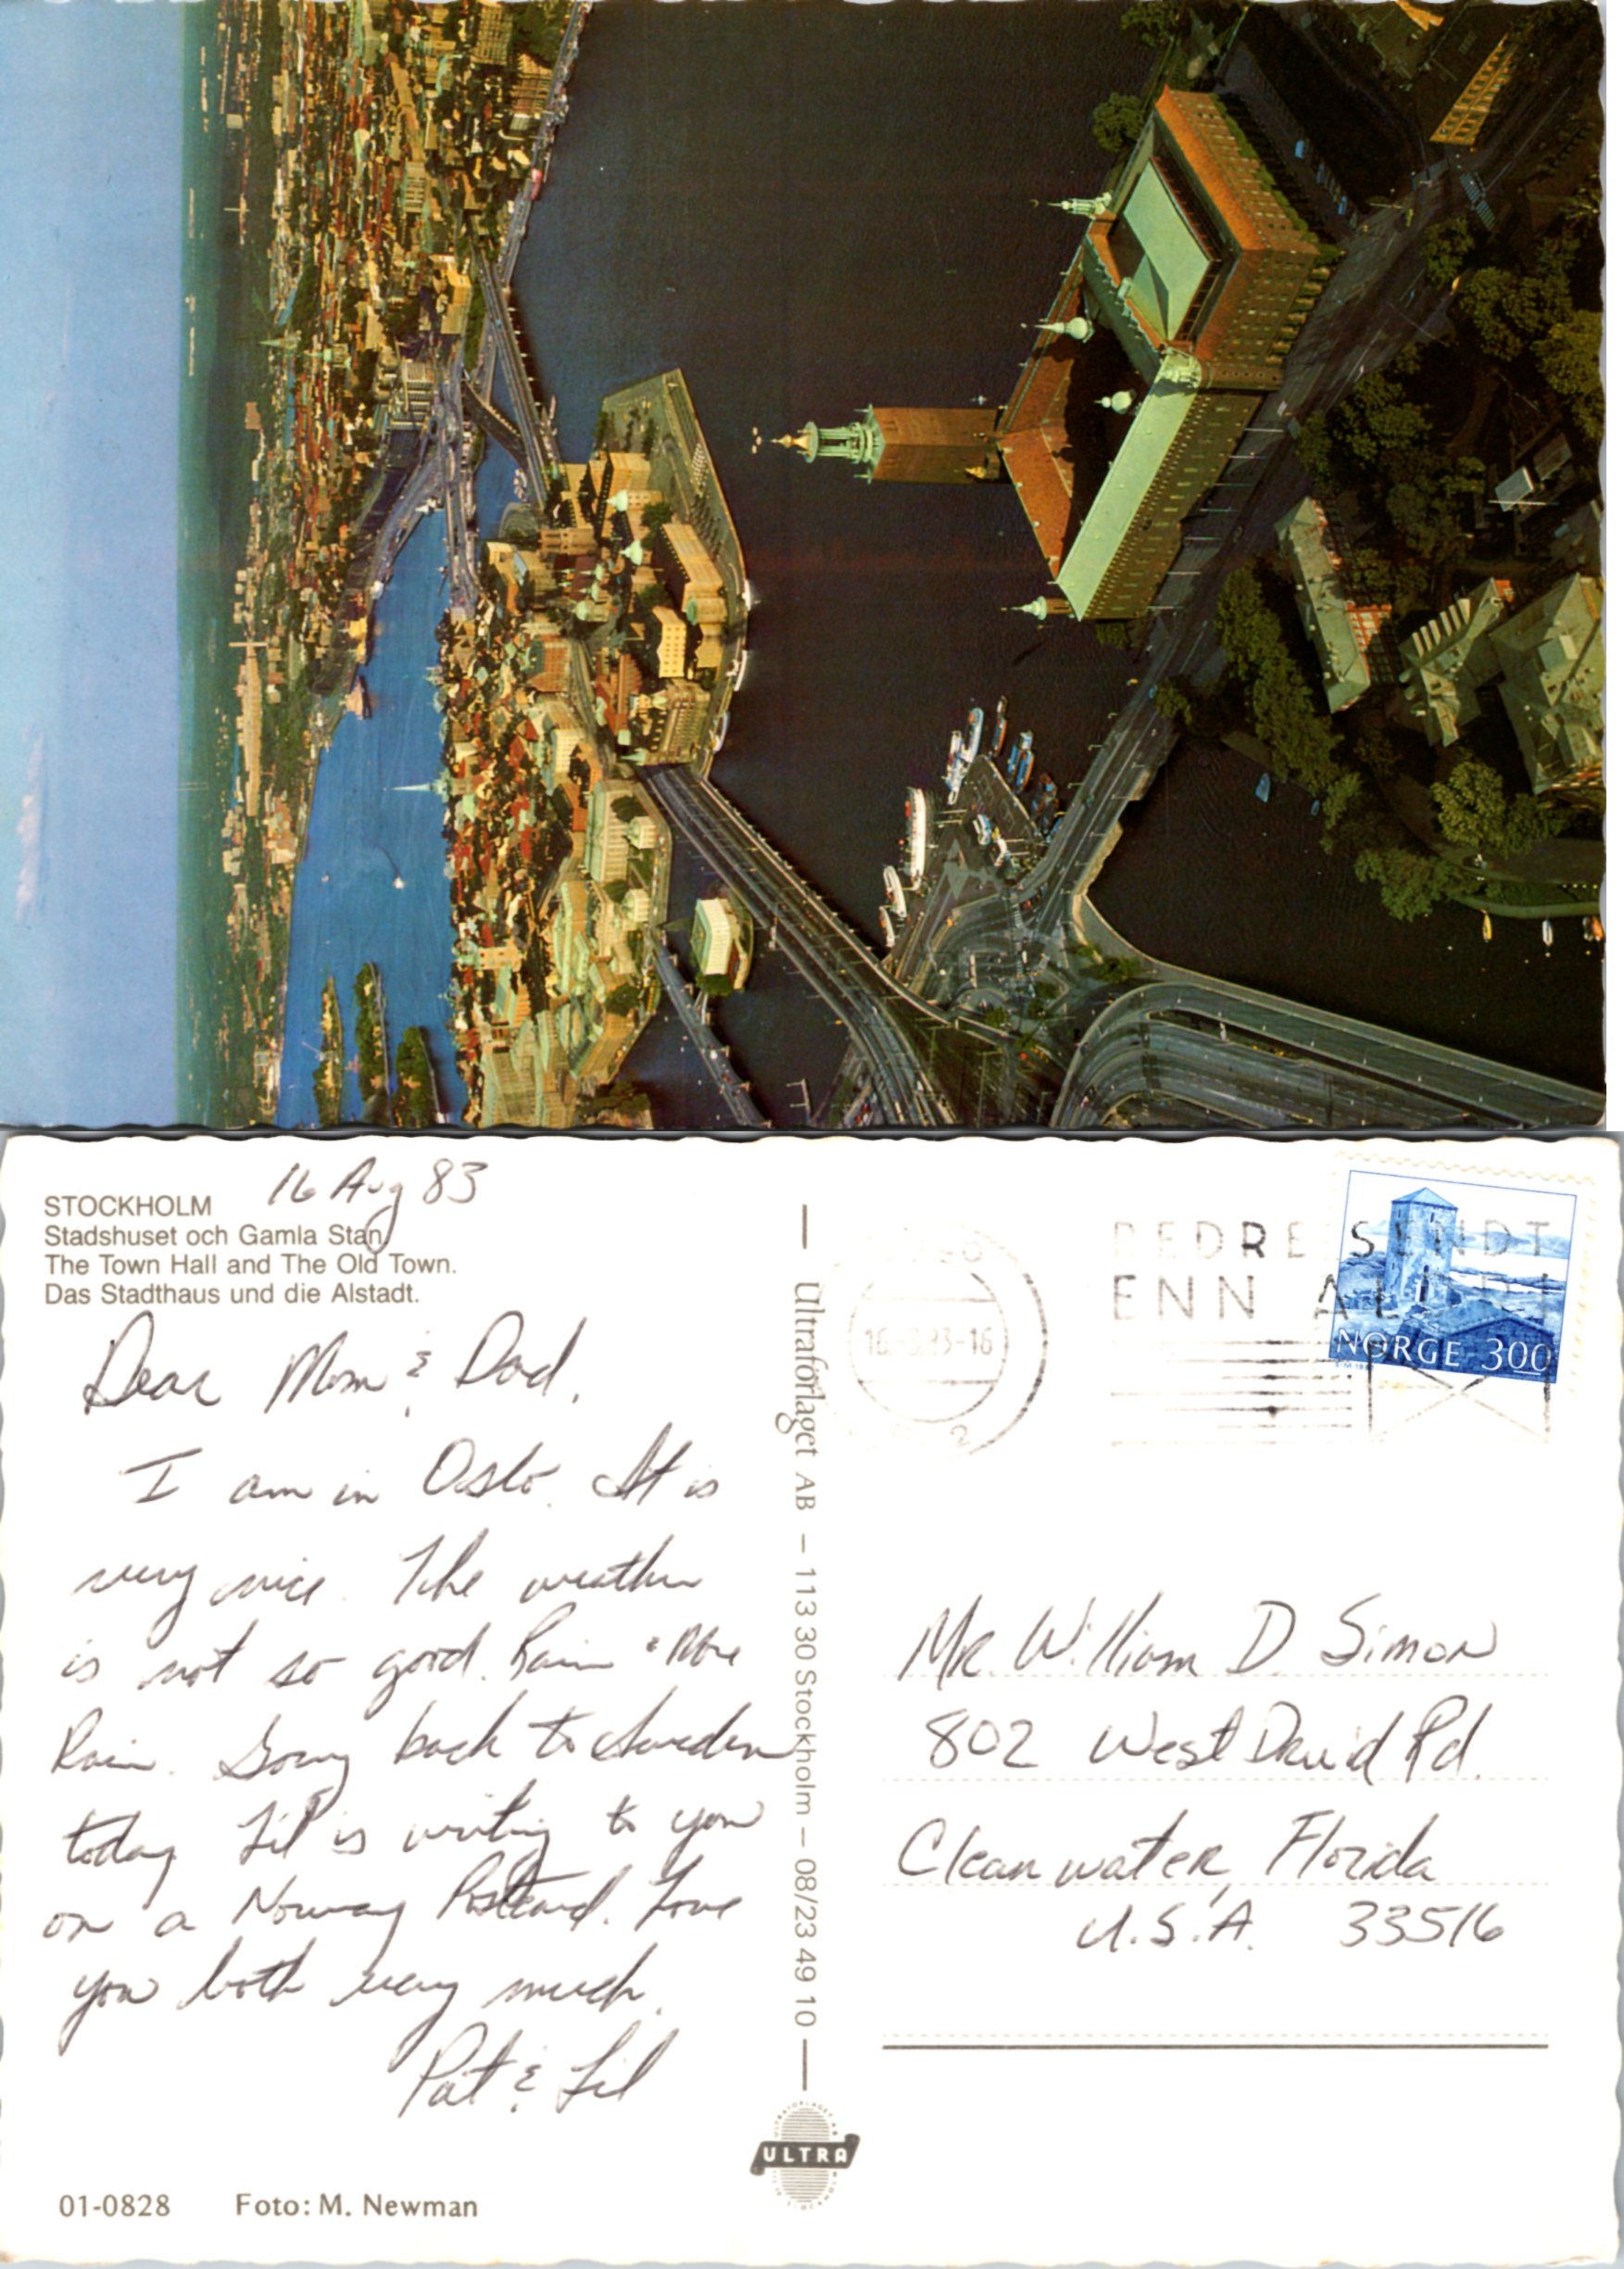 STOCKHOLM
16 Aug 83
Stadshuset och Gamla Stan.
The Town Hall and The Old Town.
Das Stadthaus und die Alstadt.
Dear Mom & Dad,
I am in Oslo. It is
very nice. The weather
is not so good. Rain & More
Rain. Going back to Sweden
today. Lil is writing to you
on a Norway Postcard. Love
you both very much.
Pat & Lil
01-0828 Foto: M. Newman
Ultraförlaget AB – 113 30 Stockholm – 08/23 49 10
ULTRA
BEDRE SENDT
ENN ALDRI
NORGE 300
Mr. William D. Simon
802 West David Rd.
Clearwater, Florida
U.S.A. 33516